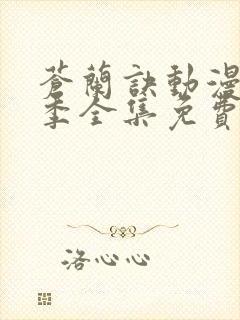 蒼蘭訣動漫
季全集免費
洛心心